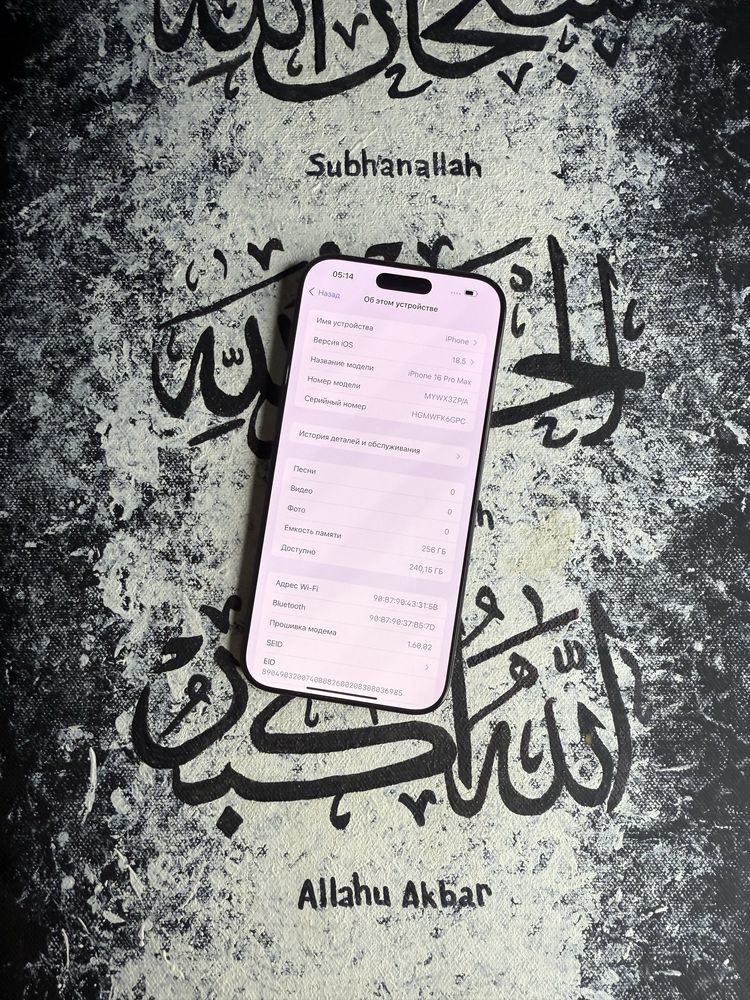 سبحان الله
Subhanallah
الحمد لله
05:14
Назад
Об этом устройстве
Имя устройства iPhone
Версия iOS 18.5
Название модели iPhone 16 Pro Max
Номер модели MYWX3ZP/A
Серийный номер HGMWFK6GPC
История деталей и обслуживания
Песни 0
Видео 0
Фото 0
Ёмкость памяти 256 ГБ
Доступно 240,15 ГБ
Адрес Wi-Fi 90:B7:90:43:31:5B
Bluetooth 90:B7:90:37:B5:7D
Прошивка модема 1.60.02
SEID
EID
89049032007408882600208388036985
h
الله أكبر
Allahu Akbar